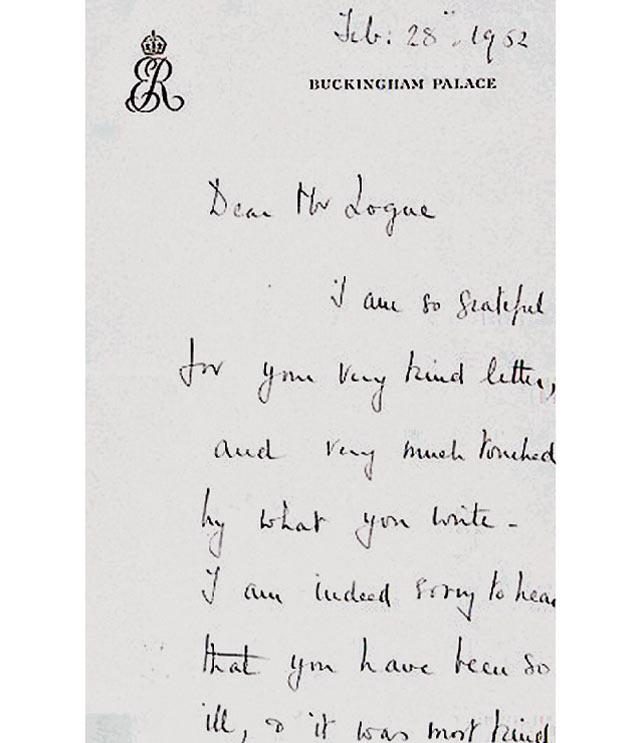 Feb: 28th. 1952
ER
BUCKINGHAM PALACE
Dear Mr Logue
I am so grateful
for your very kind letter,
and very much touched
by what you write -
I am indeed sorry to hear
that you have been so
ill, & it was most kind